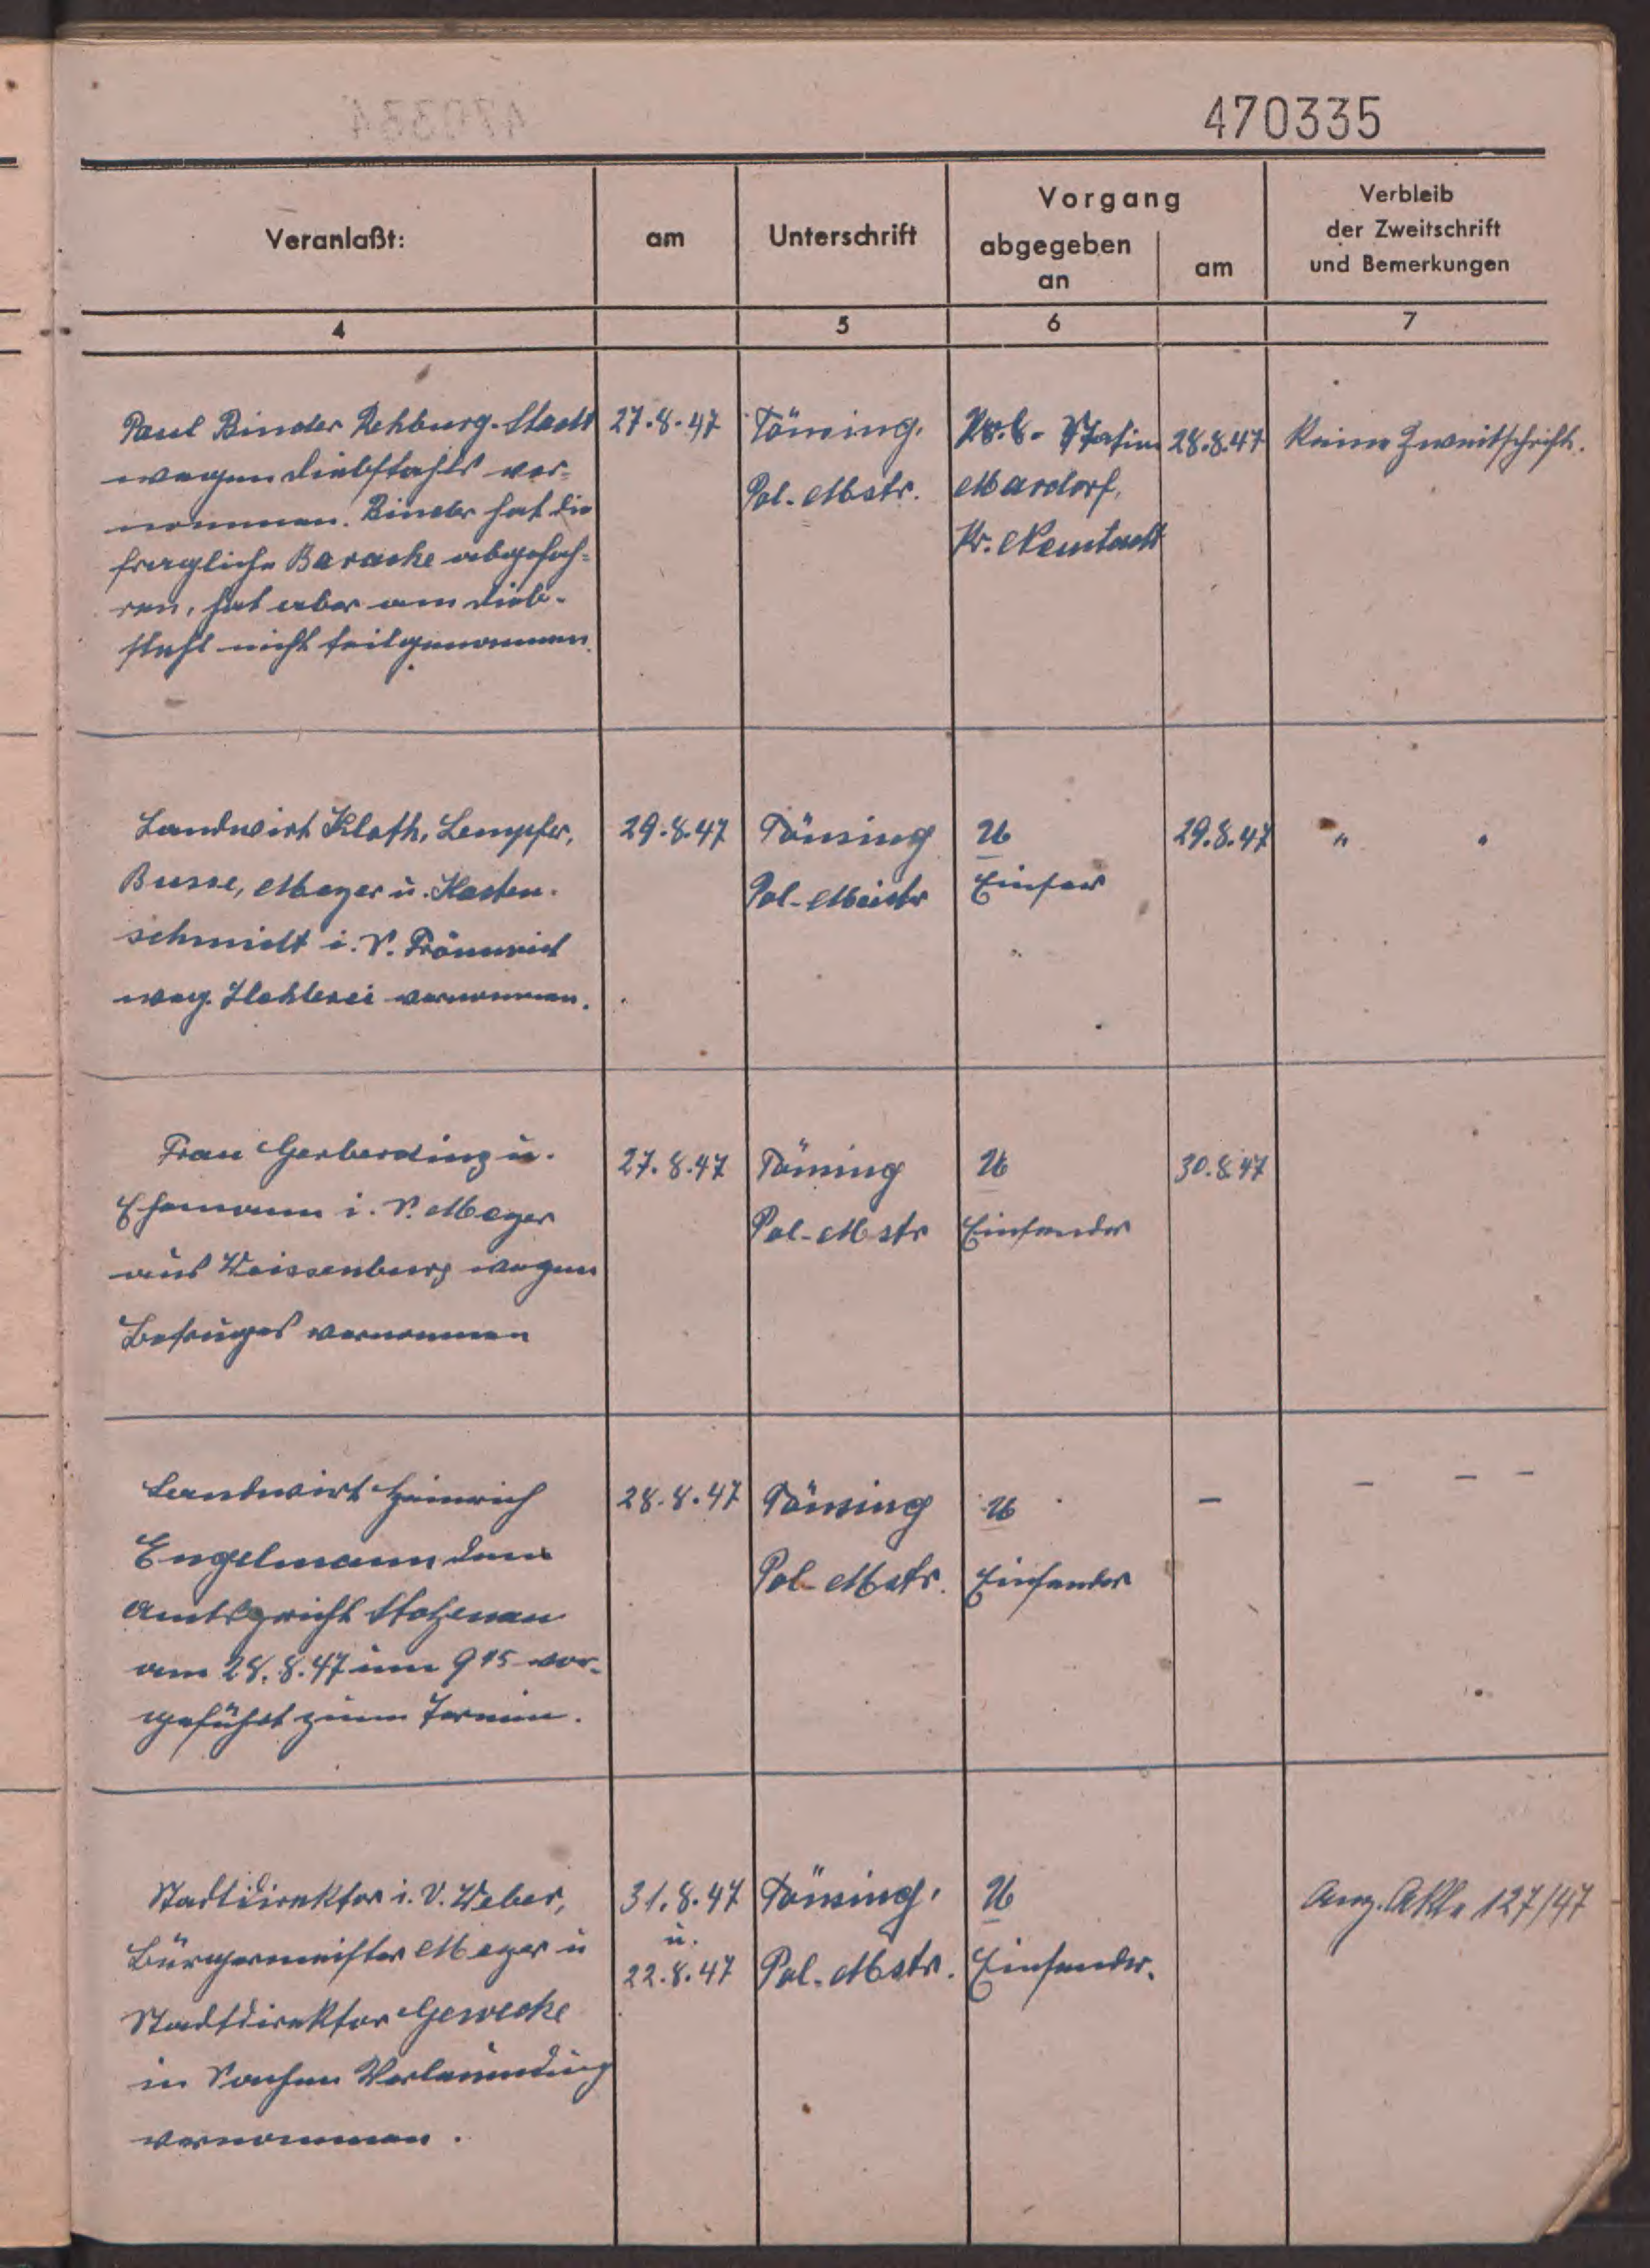 470335
Veranlaßt:
am
Unterschrift
Vorgang
abgegeben
an
am
Verbleib
der Zweitschrift
und Bemerkungen
4
5
6
7
Paul Binder Rehburg-Stadt
wegen Diebstahls ver-
nommen. Binder hat die
fragliche Baracke abgefah-
ren, hat aber am Dieb-
stahl nicht teilgenommen.
27.8.47
Tönsing,
Pol.-Mstr.
Pol.-Station
Mardorf,
Kr. Neustadt
28.8.47
Keine Zweitschrift.
Landwirt Kloth, Lempfer,
Busse, Meyer u. Kasten-
schmidt i. S. Frömmich
weg. Hehlerei vernommen.
29.8.47
Tönsing
Pol-Meister
U
Einsen
29.8.47
" "
Frau Gerberding u.
Ehemann i. S. Meyer
aus Weissenburg wegen
Betruges vernommen
27.8.47
Tönsing
Pol-Mstr
U
Einsender
30.8.47
Landwirt Heinrich
Engelmann dem
Amtsgericht Stolzenau
am 28.8.47 um 9 15 vor-
geführt zum Termin.
28.8.47
Tönsing
Pol-Mstr.
U
Einsender
–
– – –
Stadtdirektor i. V. Weber,
Bürgermeister Meyer u
Stadtdirektor Gewecke
in Sachen Verleumdung
vernommen.
31.8.47
u.
22.8.47
Tönsing,
Pol.-Mstr.
U
Einsender.
Anz. Akte 127/47